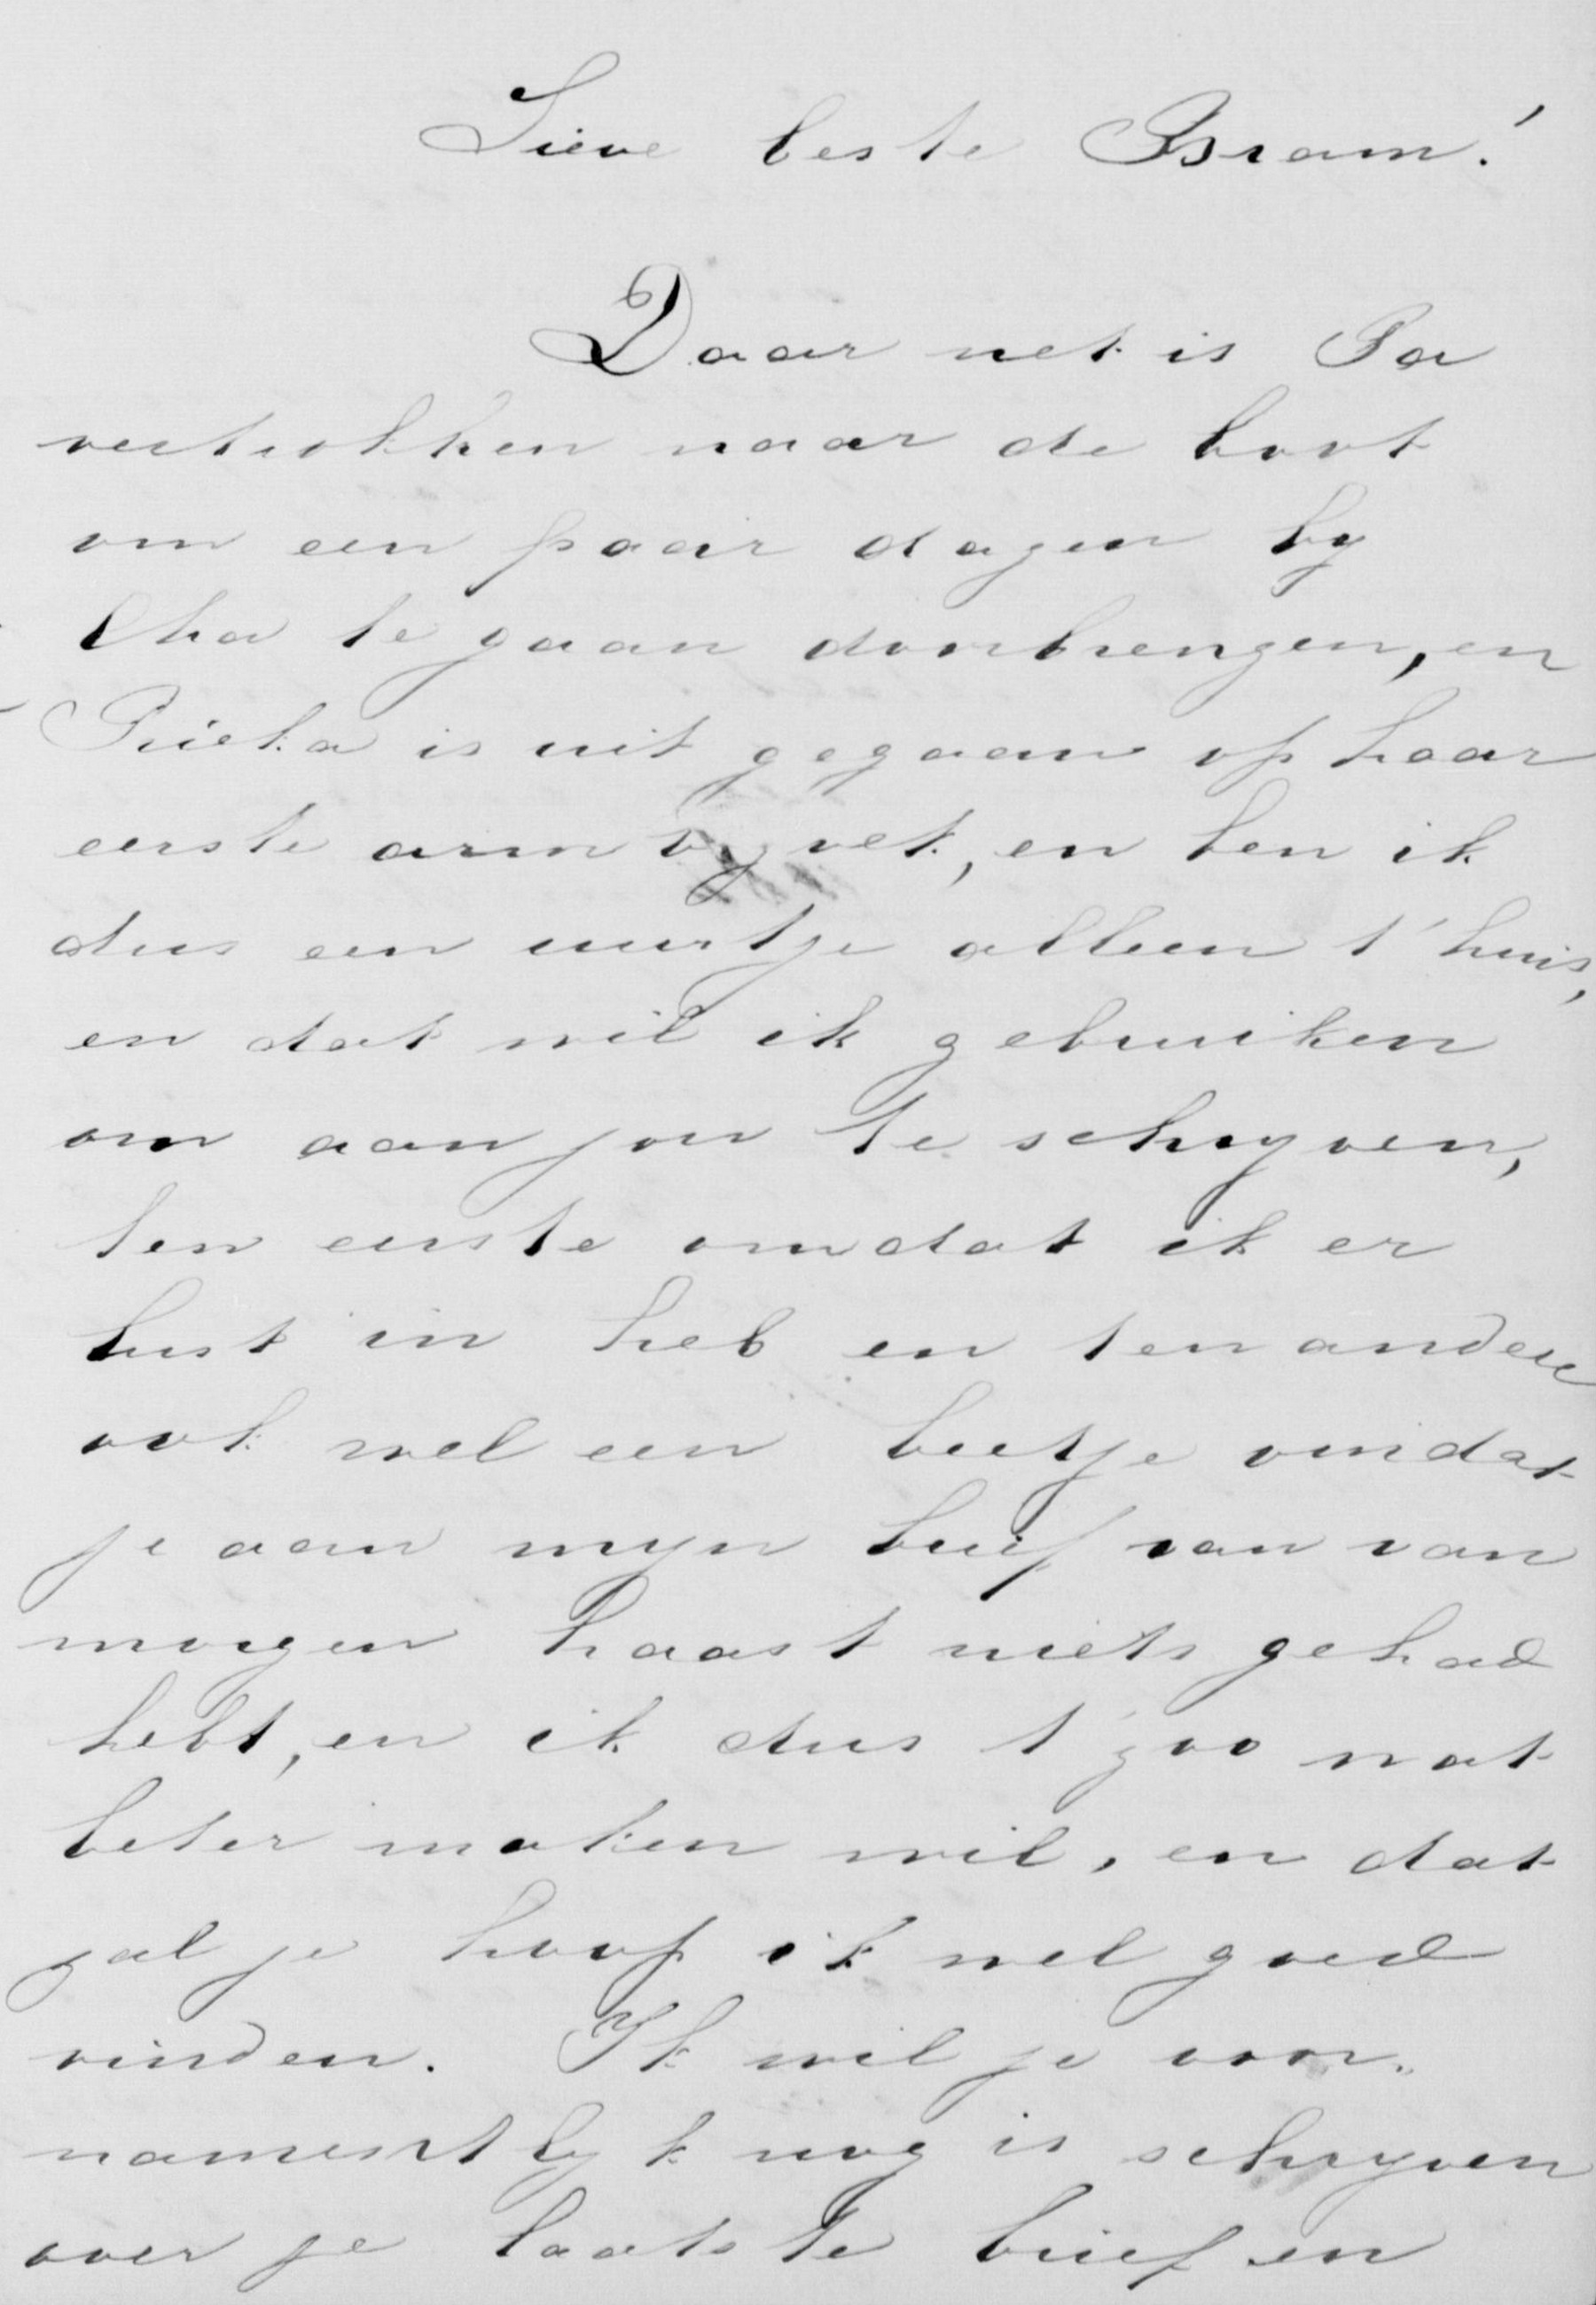 Lieve beste Bram!
Daar net is Pa
vertrokken naar de boot
om een paar dagen by
Cha te gaan doorbrengen, en
Rieka is uit gegaan op haar
eerste arm bezoek, en ben ik
dus een uurtje alleen t'huis,
en dat wil ik gebruiken
om aan jou te schryven,
ten eerste omdat ik er
lust in heb en ten andere
ook wel een beetje omdat
je aan myn brief van van
morgen haast niets gehad
hebt, en ik dus t zoo wat
beter maken wil, en dat
zal je hoop ik wel goed
vinden. Ik wil je voor„
namentlyk nog is schryven
over je laatste brief en